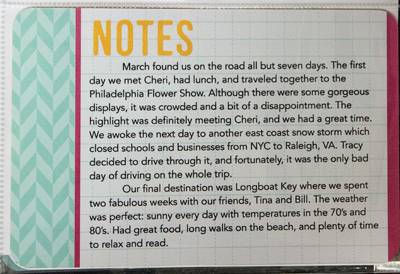 NOTES
March found us on the road all but seven days. The first
day we met Cheri, had lunch, and traveled together to the
Philadelphia Flower Show. Although there were some gorgeous
displays, it was crowded and a bit of a disappointment. The
highlight was definitely meeting Cheri, and we had a great time.
We awoke the next day to another east coast snow storm which
closed schools and businesses from NYC to Raleigh, VA. Tracy
decided to drive through it, and fortunately, it was the only bad
day of driving on the whole trip.
Our final destination was Longboat Key where we spent
two fabulous weeks with our friends, Tina and Bill. The weather
was perfect: sunny every day with temperatures in the 70's and
80's. Had great food, long walks on the beach, and plenty of time
to relax and read.